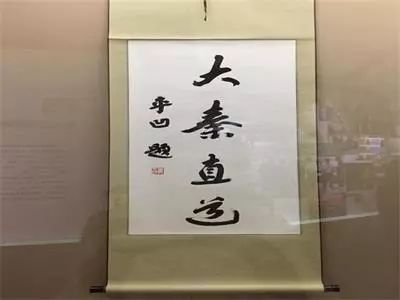 大秦直道
平凹题